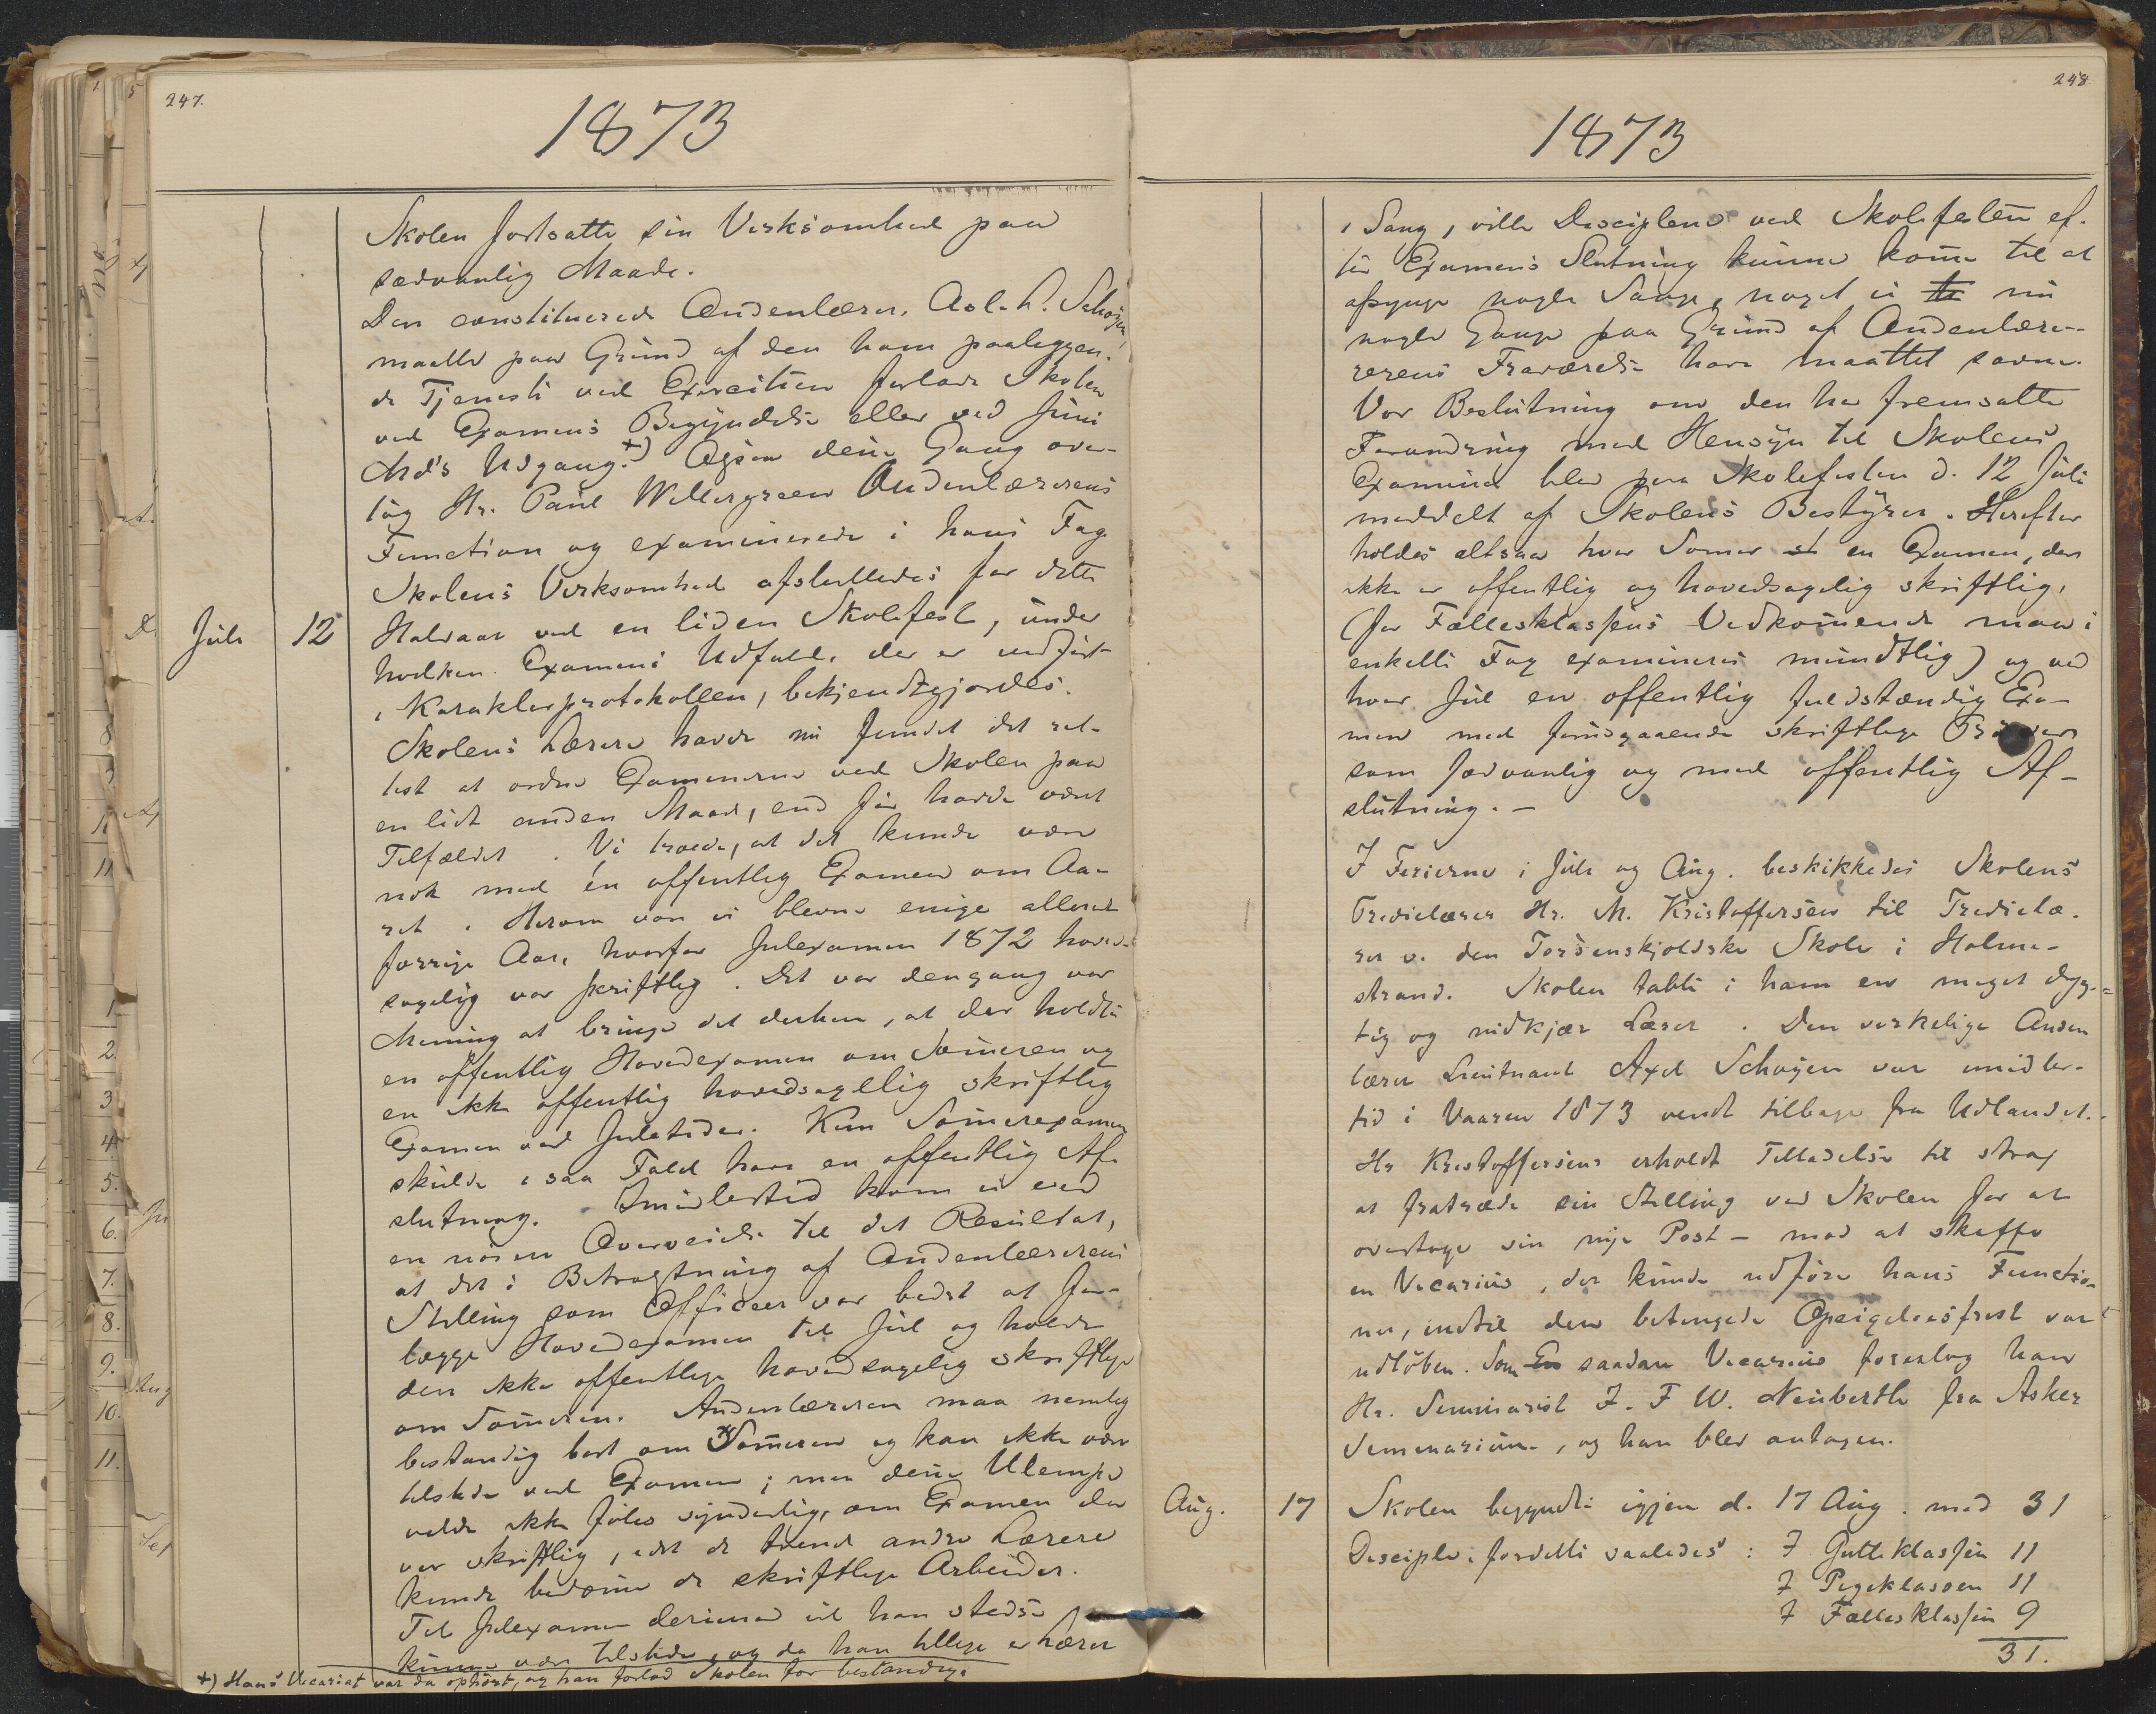 247.
1873
Skolen fortsatte sin Virksomhed paa
sædvanlig Maade.
Den constituerede Andenlærer, Schøyen,
maatte paa Grund af den ham paaliggen-
de Tjeneste ved Exercitien forlade Skolen
ved Examens Begyndelse eller ved Juni
Md's Udgang. +) Ogsaa denne Gang over-
tog Hr. Paul Willergreen Andenlærerens
Function og examinerede i hans Fag
Skolens Virksomhed afsluttedes for dette
Juli 12 Halvaar ved en liden Skolefest, under
hvilken Examens Udfald, der er indført
i Karakterprotokollen, bekjendtgjordes.
Skolens Lærere havde nu fundet det ret-
test at ordne Examenerne ved Skolen paa
en lidt anden Maade, end før havde været
Tilfældet. Vi troede, at det kunde være
nok med én offentlig Examen om Aa-
ret. Herom var vi blevne enige allerede
forrige Aar, hvorfor Julexamen 1872 hoved-
sagelig var skriftlig. Det var dengang vor
Mening at bringe det derhen, at der holdtes
en offentlig Hovedexamen om Sommeren og
en ikke offentlig hovedsagelig skriftlig
Examen ved Juletider. Kun Sommerexamen
skulde i saa Fald have en offentlig Af-
slutning. Imidlertid kom vi ved
en nöiere Overveielse til det Resultat,
at det i Betragtning af Andenlærerens
Stilling som Officeer var bedst at for-
lægge Hovedexamen til Jul og holde
den ikke offentlige hovedsagelig skriftlige
om Sommeren. Andenlæreren maa nemlig
bestandig bort om Sommeren og kan ikke være
tilstede ved Examen; men denne Ulempe
vilde ikke føles synderlig, om Examen da
var skriftlig, idet de tvende andre Lærere
kunde bedømme de skriftlige Arbeider.
Til Julexamen derimod vil han stedse
kunne være tilstede, og da han tillige er Lærer
+) Hans Vicariat var da ophört, og han forlod Skolen for bestandig.
248.
1873
i Sang, ville Disciplene ved Skolefesten ef-
ter Examens Slutning kunne komme til at
afsynge nogle Sange, noget vi nu
nogle Gange paa Grund af Andenlære-
rerens Fraværelse have maattet savne.
Vor Beslutning om den her fremsatte
Forandring med Hensyn til Skolens
Examina blev paa Skolefesten d. 12 Juli
meddelt af Skolens Bestyrer. Herefter
holdes altsaa hver Sommer en Examen, der
ikke er offentlig og hovedsagelig skriftlig,
(for Fællesklassens Vedkommende maa i
enkelte Fag examineres mundtlig) og ved
hver Jul en offentlig fuldstændig Exa-
men med forudgaaende skriftlige Pröver
som sædvanlig og med offentlig Af-
slutning. —
I Ferierne i Juli og Aug. beskikkedes Skolens
Tredielærer Hr. M. Kristoffersen til Tredielæ-
rer v. den Tordenskjoldske Skole i Holme-
strand. Skolen tabte i ham en meget dyg-
tig og nidkjær Lærer. Den virkelige Anden
lærer Lieutnant Axel Schøyen var imidler-
tid i Vaaren 1873 vendt tilbage fra Udlandet.
Hr Kristoffersen erholdt Tilladelse til strax
at fratræde sin Stilling ved Skolen for at
overtage sin nye Post — mod at skaffe
en Vicarius, der kunde udføre hans Functio-
ner, indtil den betingede Opsigelsesfrist var
udlöben. Som En saadan Vicarius foreslog han
Hr. Seminarist J. F W. Neuberth fra Asker
Seminarium, og han blev antagen.
Aug. 17 Skolen begyndte igjen d. 17 Aug. med 31
Disciple, fordelte saaledes: I Gutteklassen 11
I Pigeklassen 11
I Fællesklassen 9
31.